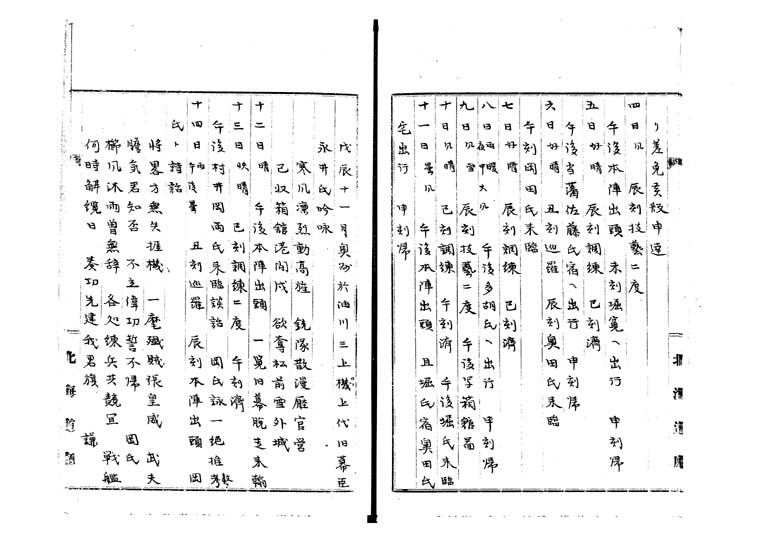 リ差免亥級申達
四日風 辰刻技藝二度
午後本陣出頭 未刻堀寛へ出行 申刻帰
五日好晴 辰刻調練 巳刻濟
午後当藩佐藤氏宿へ出行 申刻帰
六日好晴 丑刻巡羅 辰刻奥田氏来臨
午刻岡田氏来臨
七日好晴 辰刻調練 巳刻濟
八日雨夜中大風暖 午後多胡氏へ出行 申刻帰
九日風雪 辰刻技藝二度 午後写箱舘図
十日風晴 巳刻調練 午刻濟 午後堀氏来臨
十一日曇風 午後本陣出頭 且堀氏宿奥田氏
宅出行 申刻帰
戊辰十一月奥州於油川三上機上代旧幕臣
永井氏吟詠
寒風凛烈動高旌 銃隊散漫廰官営
已収箱舘港閧成 欲奪松前雪外城
十二日晴 午後本陣出頭 一覧旧幕脱走来翰
十三日快晴 巳刻調練二度 午刻濟
午後村井岡両氏来臨談話 岡氏詠一絶推考
十四日雨午後曇 丑刻巡羅 辰刻本陣出頭 岡
氏ト談話
将畧方無失捱機 一麾殲賊張皇威 武夫
膽気君知否 不立偉功誓不帰 岡氏
櫛風沐雨曽無辞 各処練兵共競宜 戦艦
何時解纜日 奏功先建我君旗 謙
北海道廳
北海道廳